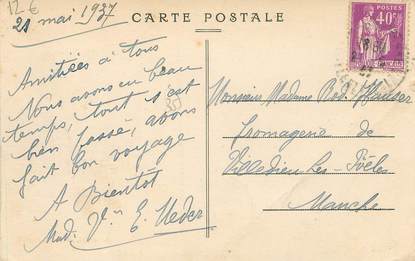 12 €
21 mai 1937
CARTE POSTALE
POSTES
40c
Amitiées a tous
Nous avons eu beau
temps, tout s'est
bien passé, avons
fait bon voyage
A Bientôt
Mad. Vve E. Neder
Monsieur, Madame Rob. Hauser
fromagerie de
Villedieu Les Poëles
Manche